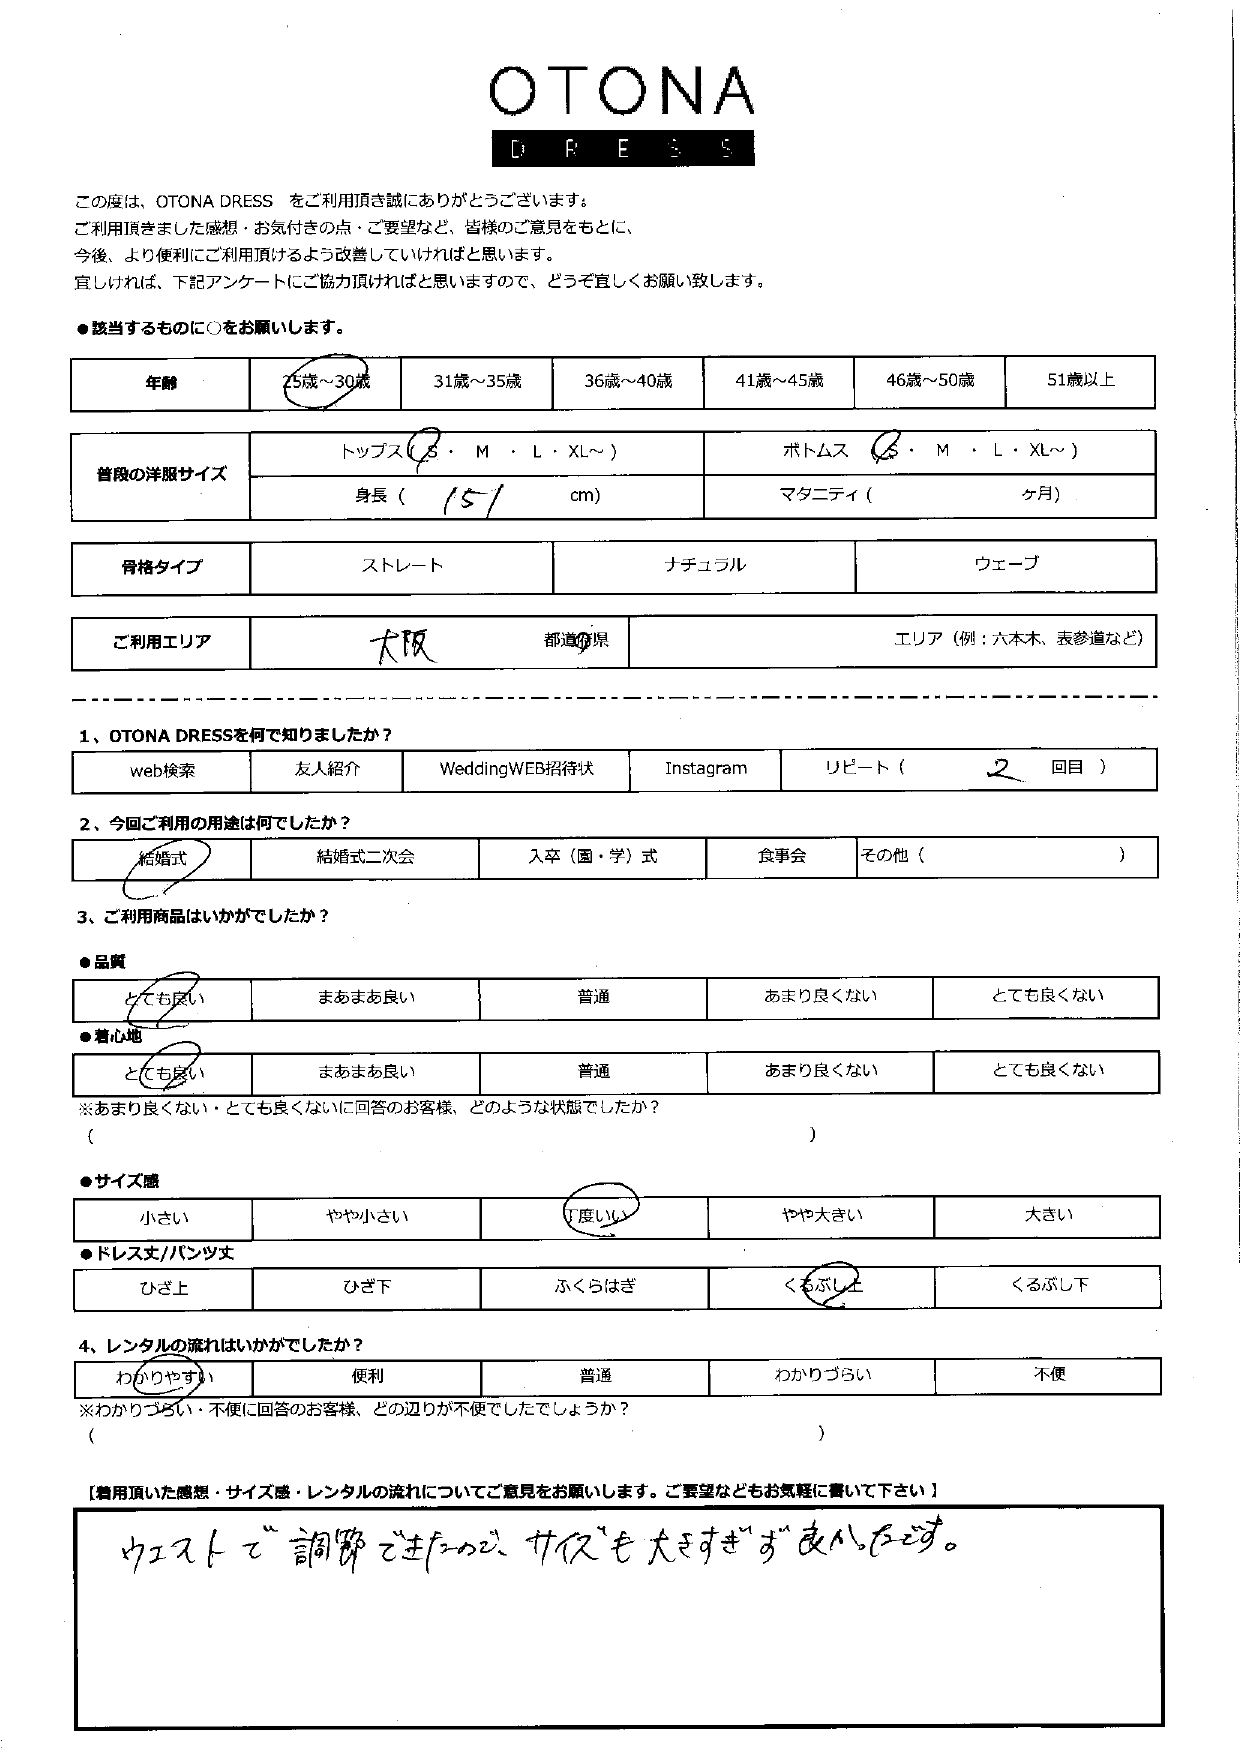 OTONA
DRESS
この度は、OTONA DRESS をご利用頂き誠にありがとうございます。
ご利用頂きました感想・お気付きの点・ご要望など、皆様のご意見をもとに、
今後、より便利にご利用頂けるよう改善していければと思います。
宜しければ、下記アンケートにご協力頂ければと思いますので、どうぞ宜しくお願い致します。
●該当するものに○をお願いします。
年齢 25歳～30歳 31歳～35歳 36歳～40歳 41歳～45歳 46歳～50歳 51歳以上
普段の洋服サイズ トップス( S ・ M ・ L ・ XL～ ) ボトムス ( S ・ M ・ L ・ XL～ )
身長 ( 151 cm) マタニティ ( ヶ月)
骨格タイプ ストレート ナチュラル ウェーブ
ご利用エリア 大阪 都道府県 エリア（例：六本木、表参道など）
1、OTONA DRESSを何で知りましたか？
web検索 友人紹介 WeddingWEB招待状 Instagram リピート ( 2 回目 )
2、今回ご利用の用途は何でしたか？
結婚式 結婚式二次会 入卒（園・学）式 食事会 その他 ( )
3、ご利用商品はいかがでしたか？
●品質
とても良い まあまあ良い 普通 あまり良くない とても良くない
●着心地
とても良い まあまあ良い 普通 あまり良くない とても良くない
※あまり良くない・とても良くないに回答のお客様、どのような状態でしたか？
( )
●サイズ感
小さい やや小さい 丁度いい やや大きい 大きい
●ドレス丈/パンツ丈
ひざ上 ひざ下 ふくらはぎ くるぶし上 くるぶし下
4、レンタルの流れはいかがでしたか？
わかりやすい 便利 普通 わかりづらい 不便
※わかりづらい・不便に回答のお客様、どの辺りが不便でしたでしょうか？
( )
【着用頂いた感想・サイズ感・レンタルの流れについてご意見をお願いします。ご要望などもお気軽に書いて下さい】
ウエストで調節できたので、サイズも大きすぎず良かったです。